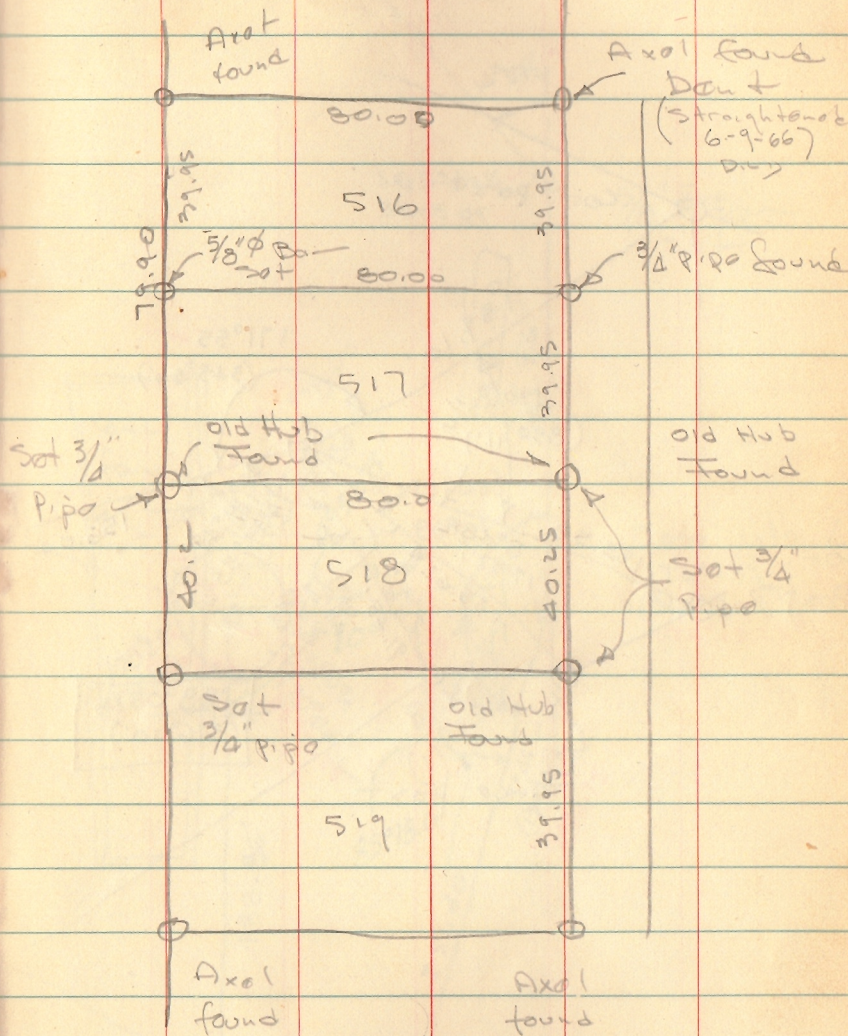 Axel
found
Axel found
Bent
(Straightened
6-9-66)
80.00
39.95
516
39.95
79.90
5/8"Ø Bar
Set
80.00
3/4" pipe found
517
39.95
Old Hub
Found
Old Hub
Found
Set 3/4"
Pipe
80.0
40.2
518
40.25
Set 3/4"
Pipe
Set
3/4" pipe
Old Hub
Found
519
39.95
Axel
found
Axel
found